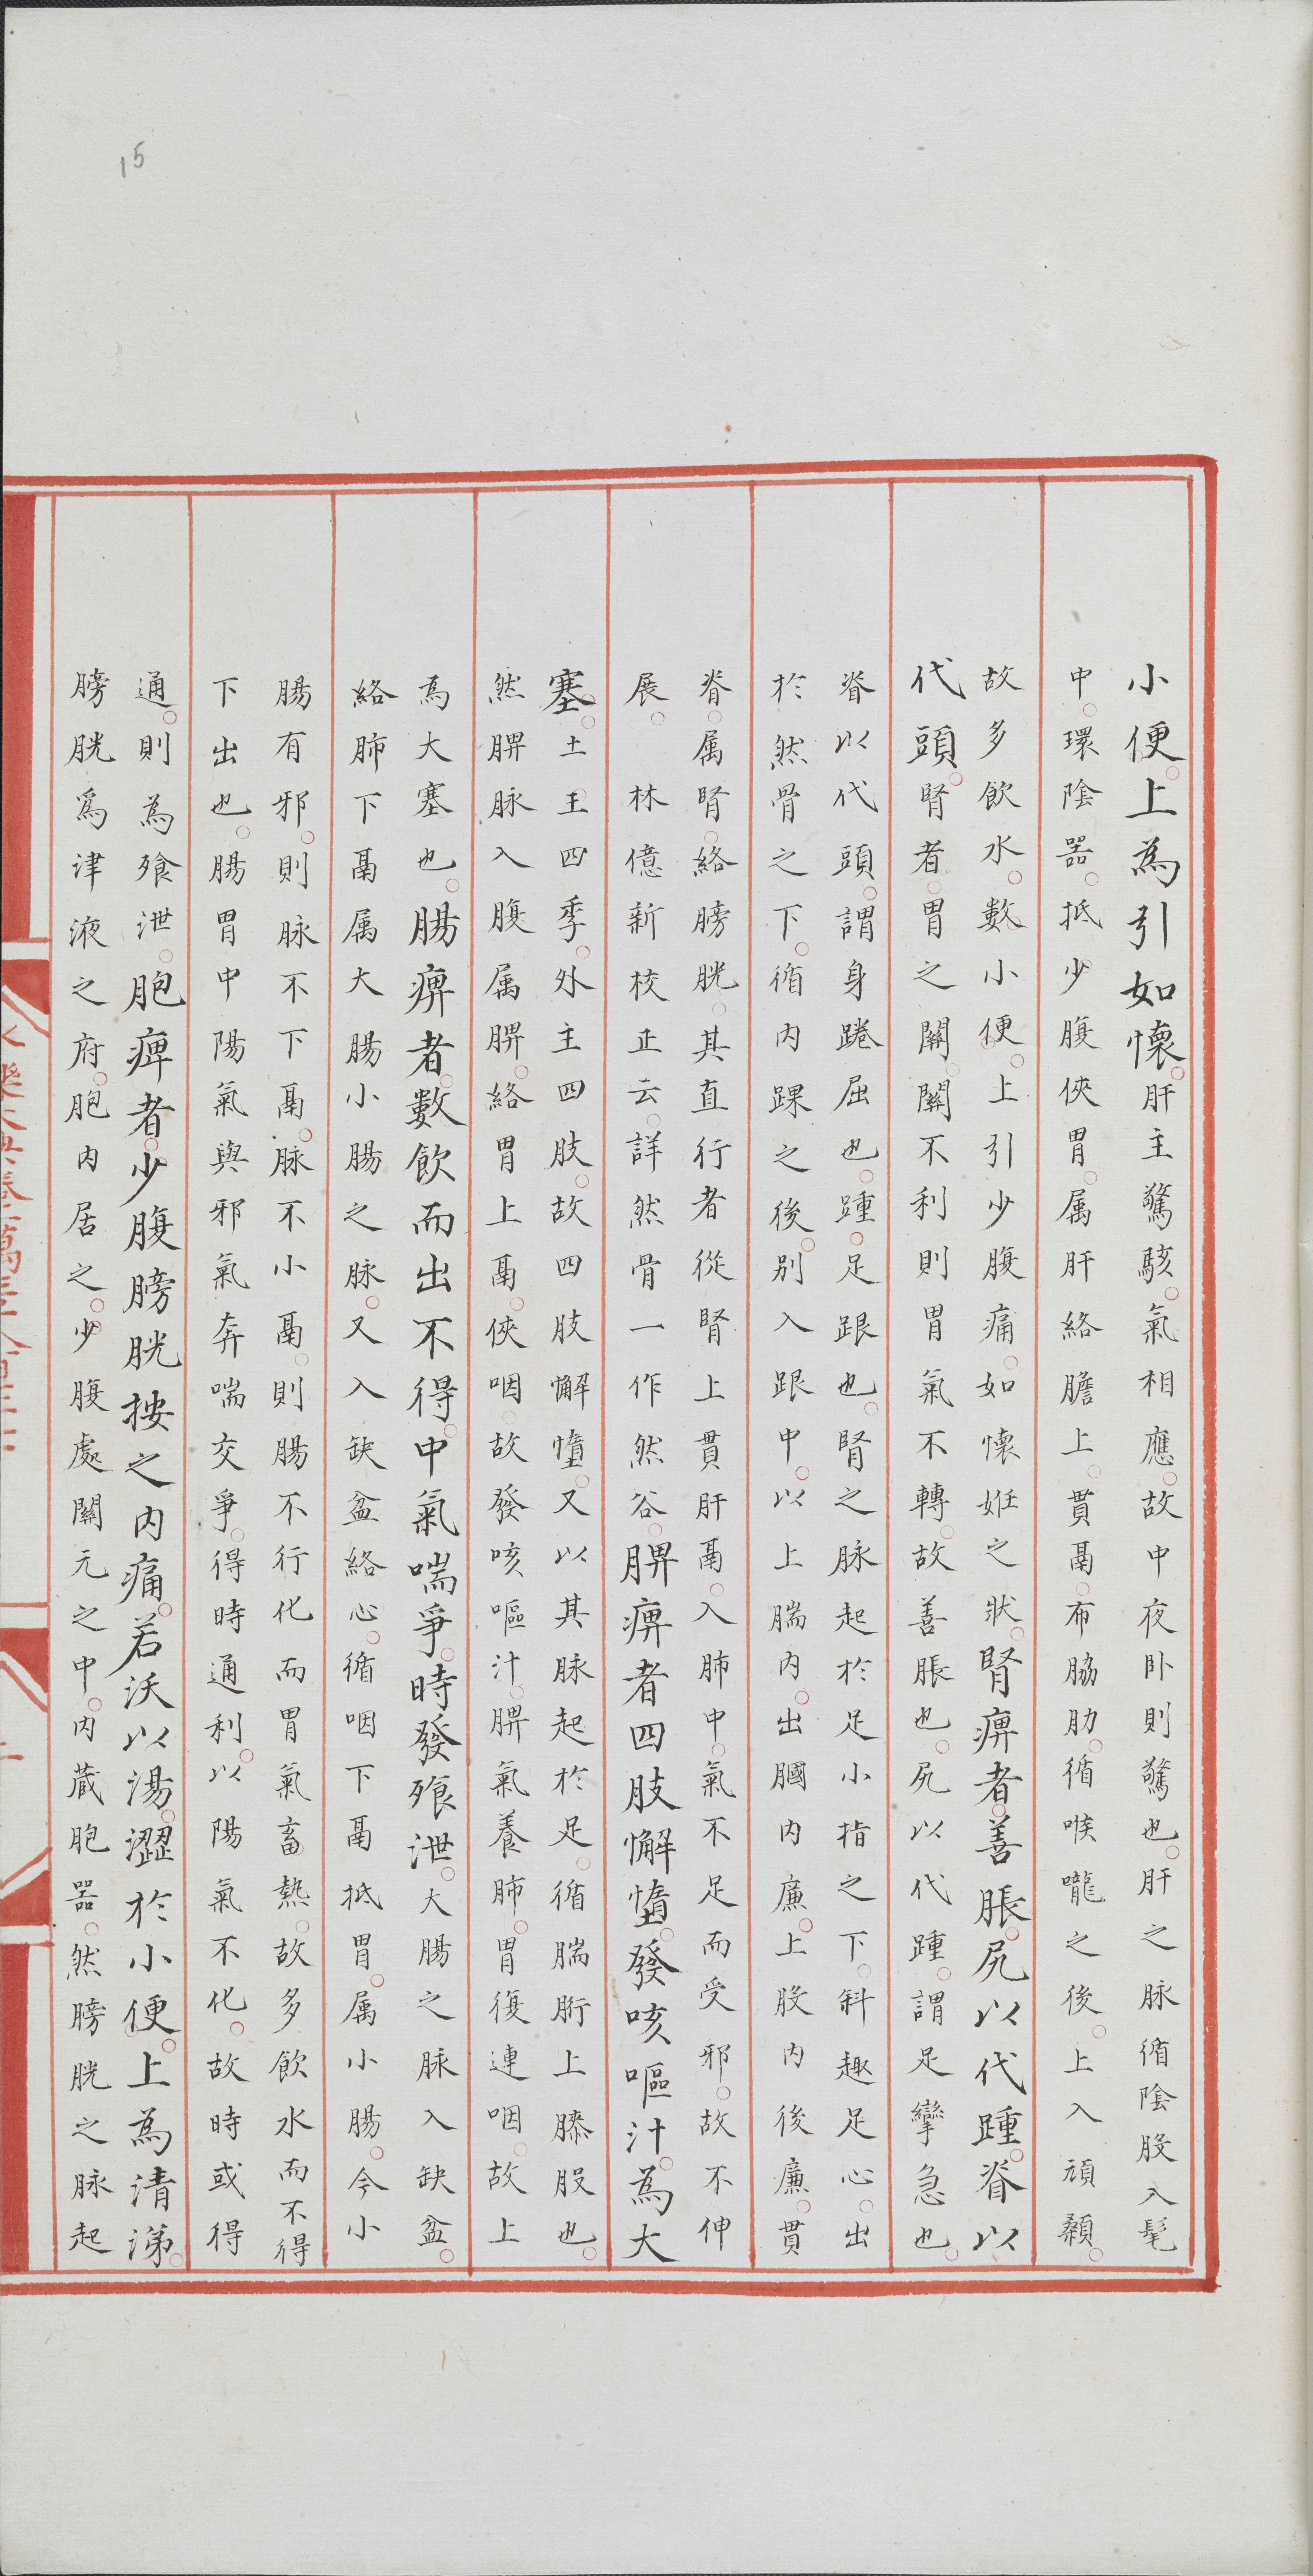 15
小便上為引如懷肝主驚駭氣相應故中夜卧則驚也肝之脉循陰股入髦
中環陰器抵少腹俠胃属肝絡膽上貫鬲布脇肋循喉嚨之後上入頏顙
故多飲水數小便上引少腹痛如懷姙之狀腎痹者善脹尻以代踵脊以
代頭腎者胃之關關不利則胃氣不轉故善脹也尻以代踵謂足攣急也
脊以代頭謂身踡屈也踵足跟也腎之脉起於足小指之下斜趣足心出
於然骨之下循内踝之後別入跟中以上腨内出膕内廉上股内後廉貫
脊属腎絡膀胱其直行者從腎上貫肝鬲入肺中氣不足而受邪故不伸
展林億新校正云詳然骨一作然谷脾痹者四肢懈墯發咳嘔汁為大
塞土王四季外主四肢故四肢懈憧又以其脉起於足循腨胻上膝股也
然脾脉入腹属脾絡胃上鬲俠咽故發咳嘔汁脾氣養肺胃復連咽故上
為大塞也腸痹者數飲而出不得中氣喘爭時發飱泄大腸之脉入缺盆
絡肺下鬲属大腸小腸之脉又入缺盆絡心循咽下鬲抵胃属小腸今小
腸有邪則脉不下鬲脉不小鬲則腸不行化而胃氣畜熱故多飲水而不得
下出也腸胃中陽氣與邪氣奔喘交爭得時通利以陽氣不化故時或得
通則為飱泄胞痺者少腹膀胱按之内痛若沃以湯澀於小便上為清涕
膀胱爲津液之府胞内居之少腹處關元之中内蔵胞器然膀胱之脉起